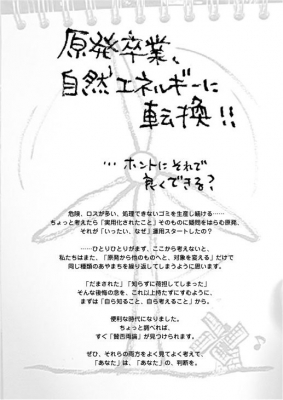 原発卒業、
自然エネルギーに
転換!!
…ホントにそれで
良くできる?
危険、ロスが多い、処理できないゴミを生産し続ける……
ちょっと考えたら「実用化されたこと」そのものに疑問をはらむ原発、
それが「いったい、なぜ」運用スタートしたの?
……ひとりひとりがまず、ここから考えないと、
私たちはまた、「原発から他のものへと、対象を変える」だけで
同じ種類のあやまちを繰り返してしまうように思います。
「だまされた」「知らずに荷担してしまった」
そんな後悔の念を、これ以上持たずにすむように、
まずは「自ら知ること、自ら考えること」から。
便利な時代になりました。
ちょっと調べれば、
すぐ「賛否両論」が見つけられます。
ぜひ、それらの両方をよく見てよく考えて、
「あなた」は、「あなた」の、判断を。